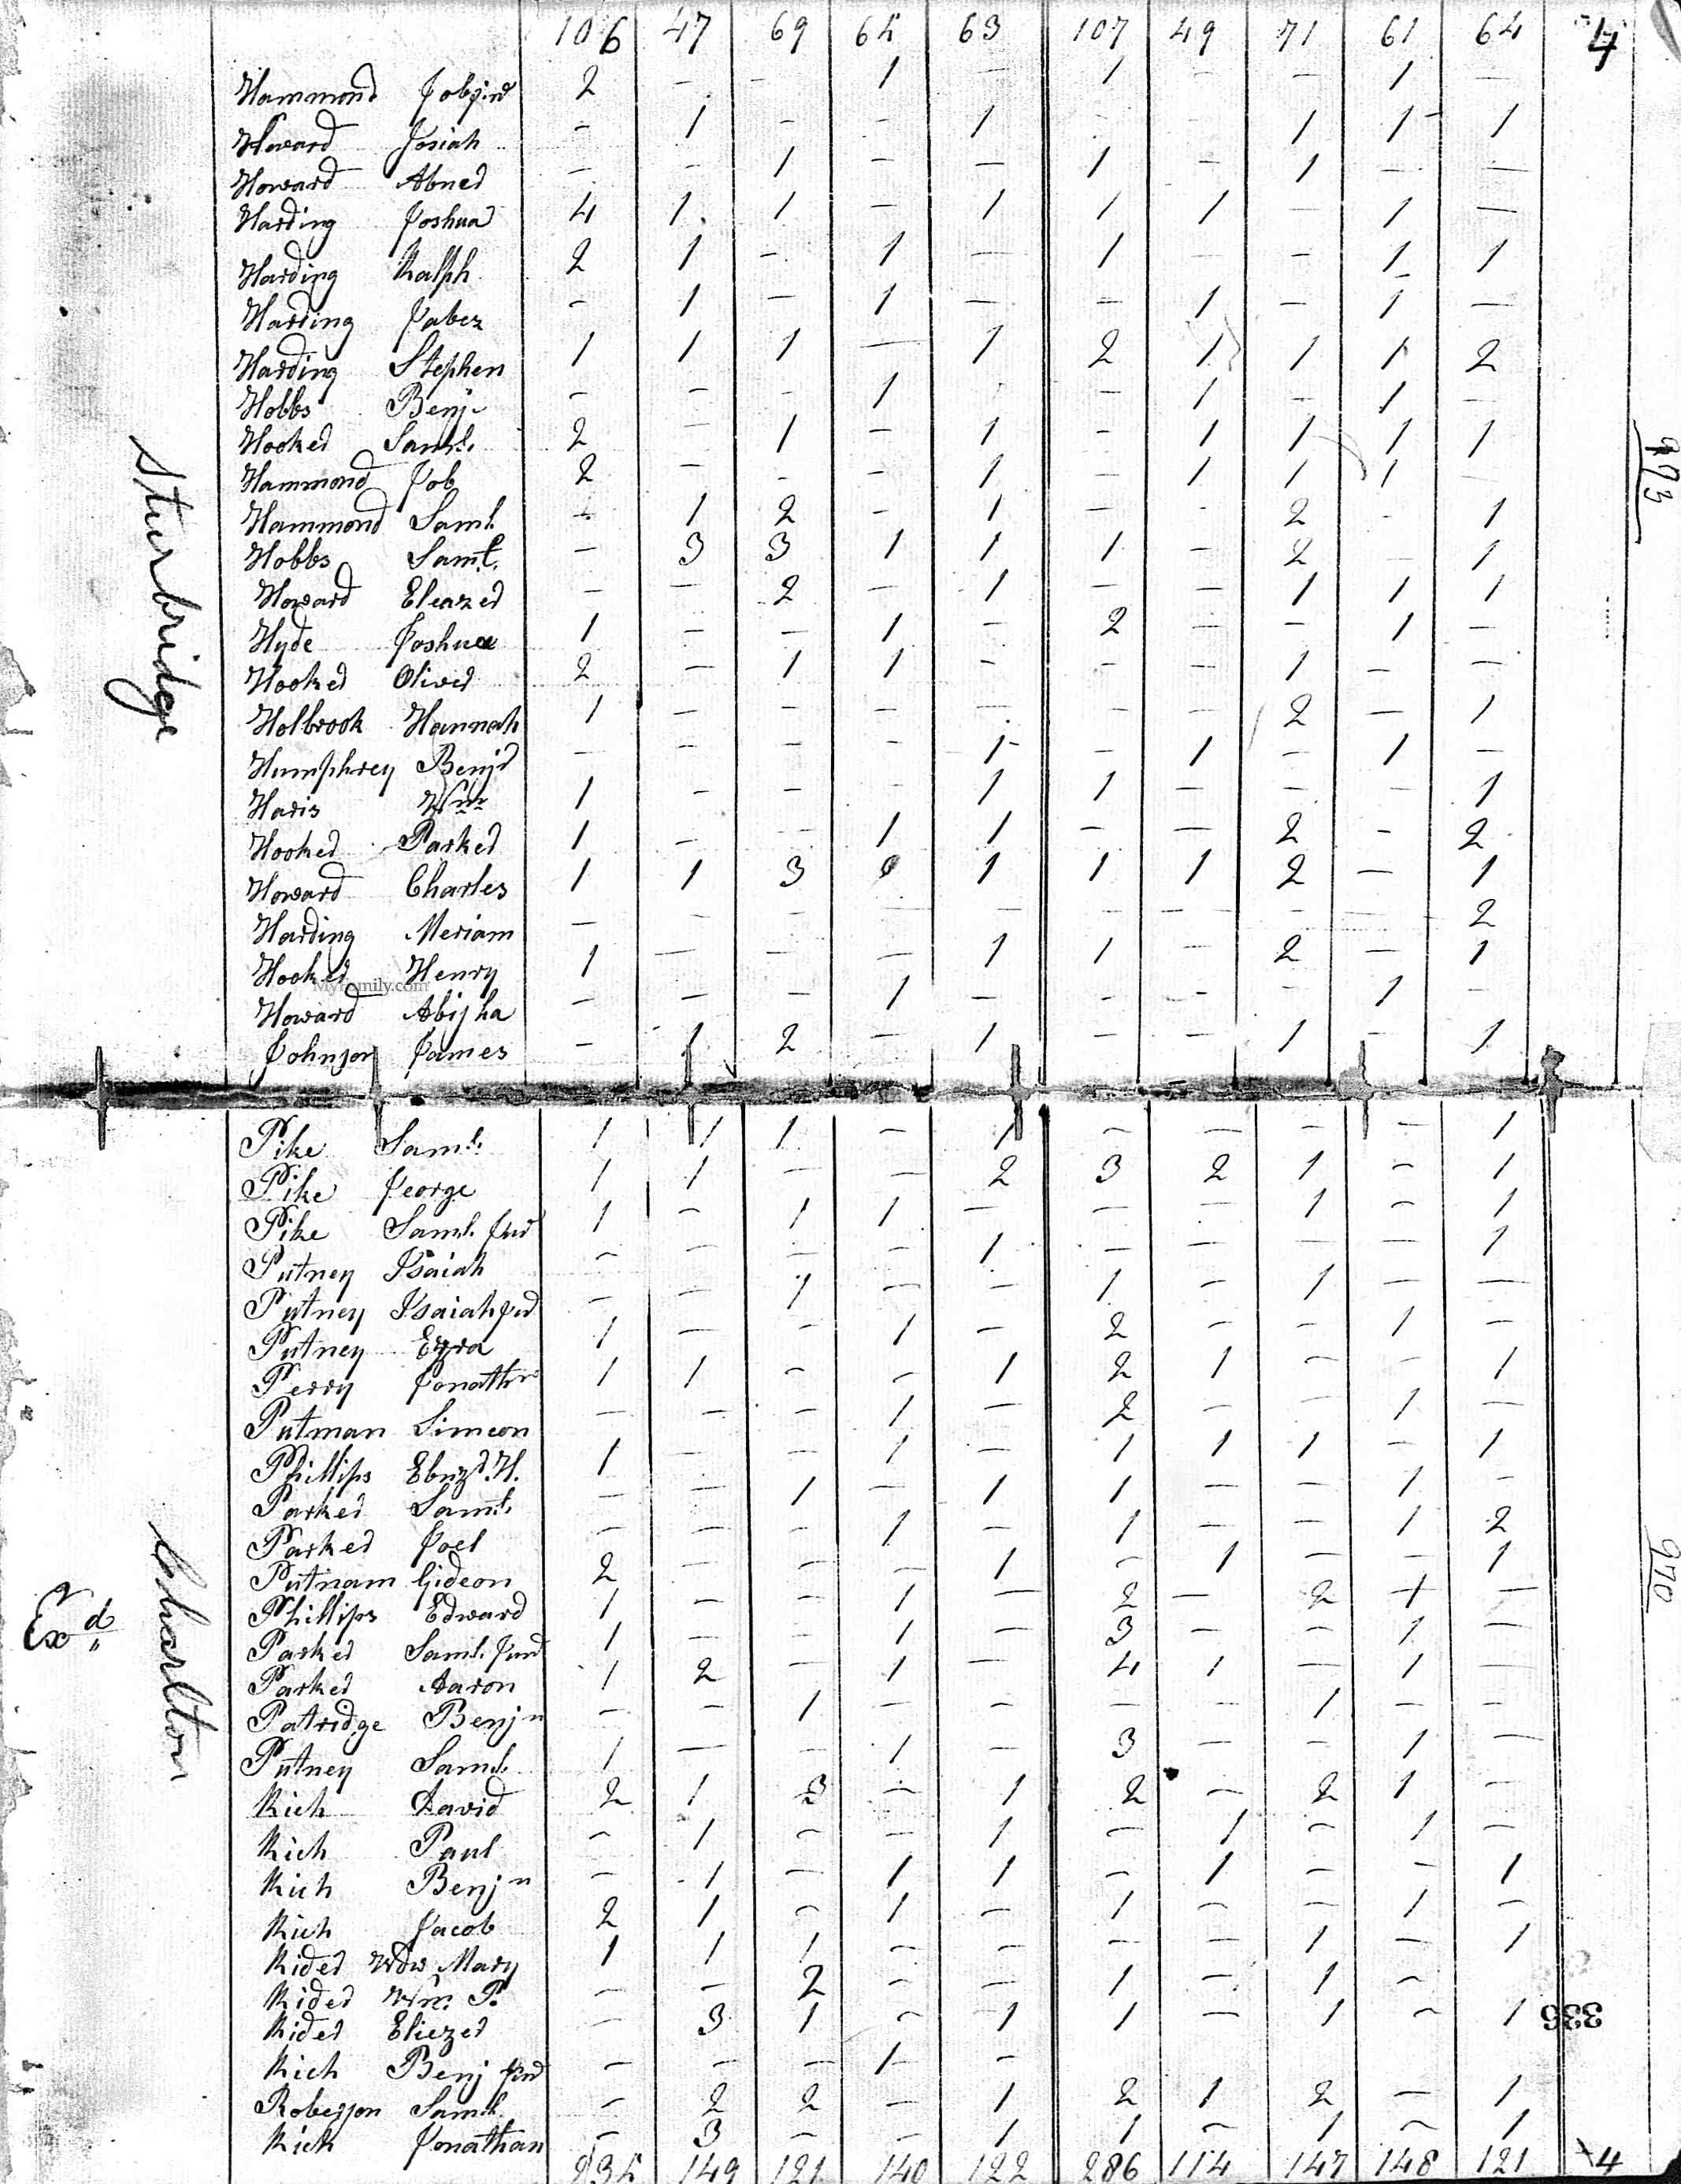 106 47 69 65 63 107 49 71 61 64 4
Hammond Job Junr 2 - - 1 - 1 - - 1 -
Howard Josiah - 1 - - 1 - - 1 1 1
Howard Abner - - 1 - - 1 - 1 - -
Harding Joshua 4 1 1 - 1 1 1 - 1 -
Harding Ralph 2 1 - 1 - 1 - - 1 1
Harding Jabez - 1 - 1 - - 1 - 1 -
Harding Stephen 1 1 1 - 1 2 1 1 1 2
Hobbs Benj - - - 1 - - 1 - 1 -
Hooker Saml. 2 - 1 - 1 - 1 1 1 1
Hammond Job 2 - - - 1 - 1 1 1 -
Hammond Saml. - 1 2 - 1 - - 2 - 1
Hobbs Saml. - 3 3 1 1 1 - 2 - 1
Howard Eleazer - - 2 - 1 - - 1 1 1
Hyde Joshua 1 - - 1 - 2 - - 1 -
Hooker Oliver 2 - 1 1 - - - 1 - -
Holbrook Hannah 1 - - - - - - 2 - 1
Humphrey Benj - - - - 1 - 1 - 1 -
Haris Wm 1 - - - 1 1 - - - 1
Hooker Parker 1 - - 1 1 - - 2 - 2
Howard Charles 1 1 3 1 1 1 2 - 1
Harding Meriam - - - - - - - - - 2
Hooker Henry 1 - - - 1 1 - 2 - 1
Howard Abijha - - - 1 - - - - 1 -
Johnson James - 1 2 - 1 - - 1 - 1
Sturbridge
973
MyFamily.com
Pike Saml. 1 1 1 - 1 - - - - 1
Pike George 1 1 - - 2 3 2 1 - 1
Pike Saml. Junr 1 - 1 1 - - - 1 - 1
Putney Isaiah - - - - 1 - - - - 1
Putney Isaiah Jur - - 1 - - 1 - 1 - -
Putney Ezra 1 - - 1 - 2 - - 1 -
Perry Jonathn 1 1 - - 1 2 1 - - 1
Putman Simeon - - - 1 - 2 - - 1 -
Phillips Ebnzr. H. 1 - - 1 - 1 1 1 - 1
Parker Saml. - - 1 - 1 1 - - 1 -
Parker Joel - - - 1 - 1 - - 1 2
Putnam Gideon 2 - - - 1 - 1 - - 1
Phillips Edward 1 - - 1 - 2 - 2 1 -
Parker Saml. Junr 1 - - 1 - 3 - - 1 -
Parker Aaron 1 2 - 1 - 4 1 - 1 -
Patridge Benjn - - 1 - - - - 1 - -
Putney Saml. 1 - - 1 - 3 - - 1 -
Rich David 2 1 3 - 1 2 - 2 1 -
Rich Paul - 1 - - 1 - 1 - 1 -
Rich Benjn - 1 - 1 1 - 1 - - 1
Rich Jacob 2 1 - 1 - 1 - - 1 -
Rider Wdw Mary 1 1 1 - - - - 1 - 1
Rider Wm. P. - - 2 - - 1 - 1 -
Rider Eliezer - 3 1 - 1 1 - 1 - 1
Rich Benj Jnr - - - 1 -
Roberson Saml. - 2 2 - 1 2 1 2 - 1
Rich Jonathan - 3 - - 1 1 - 1 - 1
235 149 121 140 122 286 114 147 148 121 4
Charlton
Exd
970
336